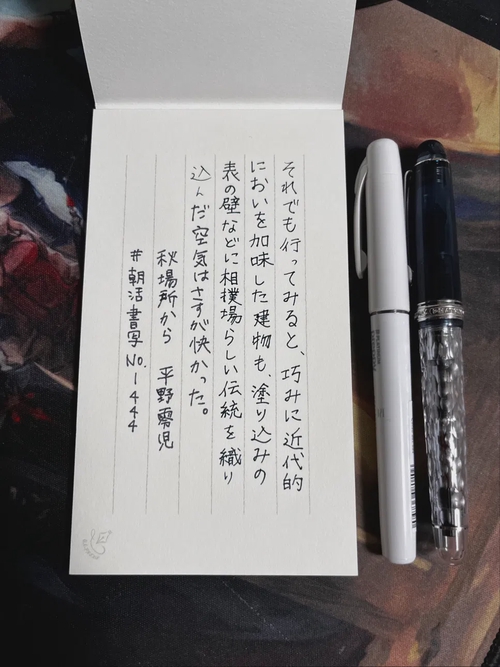 それでも行ってみると、巧みに近代的
においを加味した建物も、塗り込みの
表の壁などに相撲場らしい伝統を織り
込んだ空気はさすが快かった。
秋場所から　平野零児
#朝活書写 No.1444